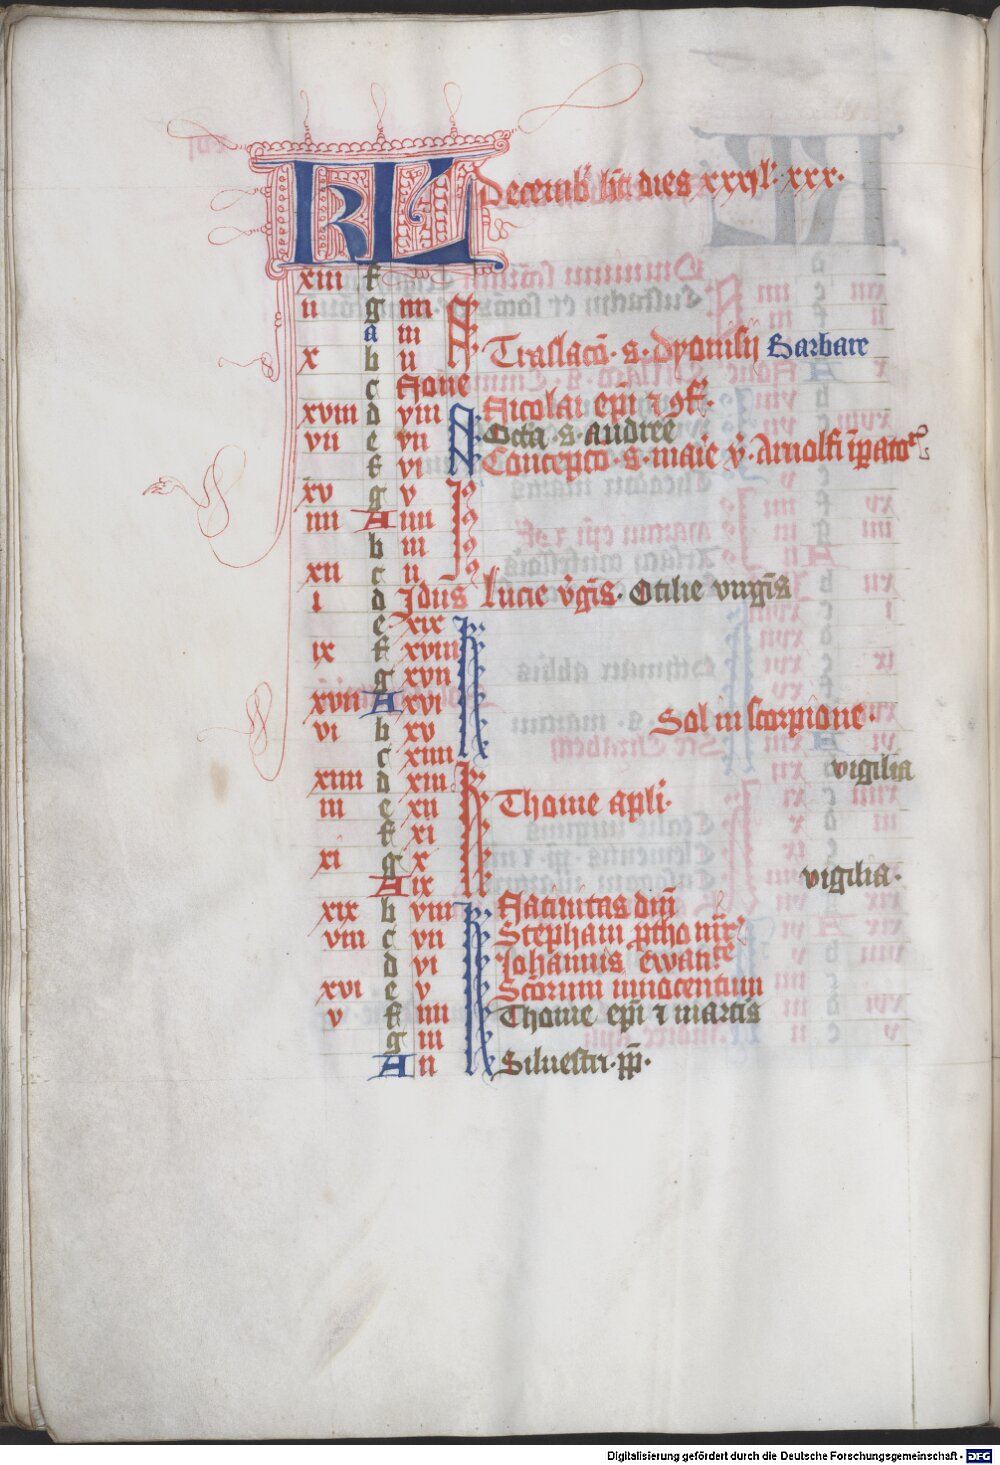 KL Decemb' h̅t dies xxxi l' xxx·
xiii f
ii g iiii N
A iii
x b ii Traslac̅o̅· s· dyonisii Barbare
c None
xviii d viii Nicolai ep̅i ⁊ 9f·
vii e vii Octa̅· s· andree
f vi Concepc̅o· s· ma̅ie v̅· Arnolfi i̅p̅ator̅
xv g v
iiii A iiii
b iii
xii c ii
i d Idus Lucie v̅gi̅s· Otilie virgi̅s
e xix
ix f xviii
g xvii
xvii A xvi
vi b xv Sol in scorpione·
c xiiii
xiiii d xiii vigilia
iii e xii Thome ap̅li·
f xi
xi g x
A ix vigilia·
xix b viii Natiuitas dn̅i
viii c vii Stephani p̅tho m̅r̅
d vi Johannis ewan̅te
xvi e v Sc̅orum innocentum
v f iiii Thome ep̅i ⁊ marti̅s
g iii
A ii Siluestri· pp̅·
Digitalisierung gefördert durch die Deutsche Forschungsgemeinschaft - DFG